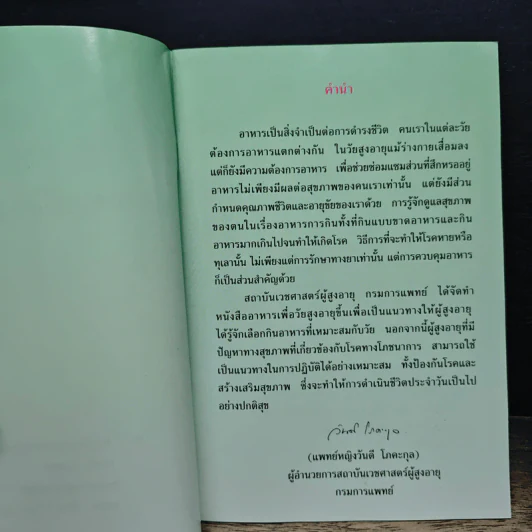 คำนำ
อาหารเป็นสิ่งจำเป็นต่อการดำรงชีวิต คนเราในแต่ละวัย
ต้องการอาหารแตกต่างกัน ในวัยสูงอายุแม้ร่างกายเสื่อมลง
แต่ก็ยังมีความต้องการอาหาร เพื่อช่วยซ่อมแซมส่วนที่สึกหรออยู่
อาหารไม่เพียงมีผลต่อสุขภาพของคนเราเท่านั้น แต่ยังมีส่วน
กำหนดคุณภาพชีวิตและอายุขัยของเราด้วย การรู้จักดูแลสุขภาพ
ของตนในเรื่องอาหารการกินทั้งที่กินแบบขาดอาหารและกิน
อาหารมากเกินไปจนทำให้เกิดโรค วิธีการที่จะทำให้โรคหายหรือ
ทุเลานั้น ไม่เพียงแต่การรักษาทางยาเท่านั้น แต่การควบคุมอาหาร
ก็เป็นส่วนสำคัญด้วย
สถาบันเวชศาสตร์ผู้สูงอายุ กรมการแพทย์ ได้จัดทำ
หนังสืออาหารเพื่อวัยสูงอายุขึ้นเพื่อเป็นแนวทางให้ผู้สูงอายุ
ได้รู้จักเลือกกินอาหารที่เหมาะสมกับวัย นอกจากนี้ผู้สูงอายุที่มี
ปัญหาทางสุขภาพที่เกี่ยวข้องกับโรคทางโภชนาการ สามารถใช้
เป็นแนวทางในการปฏิบัติได้อย่างเหมาะสม ทั้งป้องกันโรคและ
สร้างเสริมสุขภาพ ซึ่งจะทำให้การดำเนินชีวิตประจำวันเป็นไป
อย่างปกติสุข
(แพทย์หญิงวันดี โภคะกุล)
ผู้อำนวยการสถาบันเวชศาสตร์ผู้สูงอายุ
กรมการแพทย์